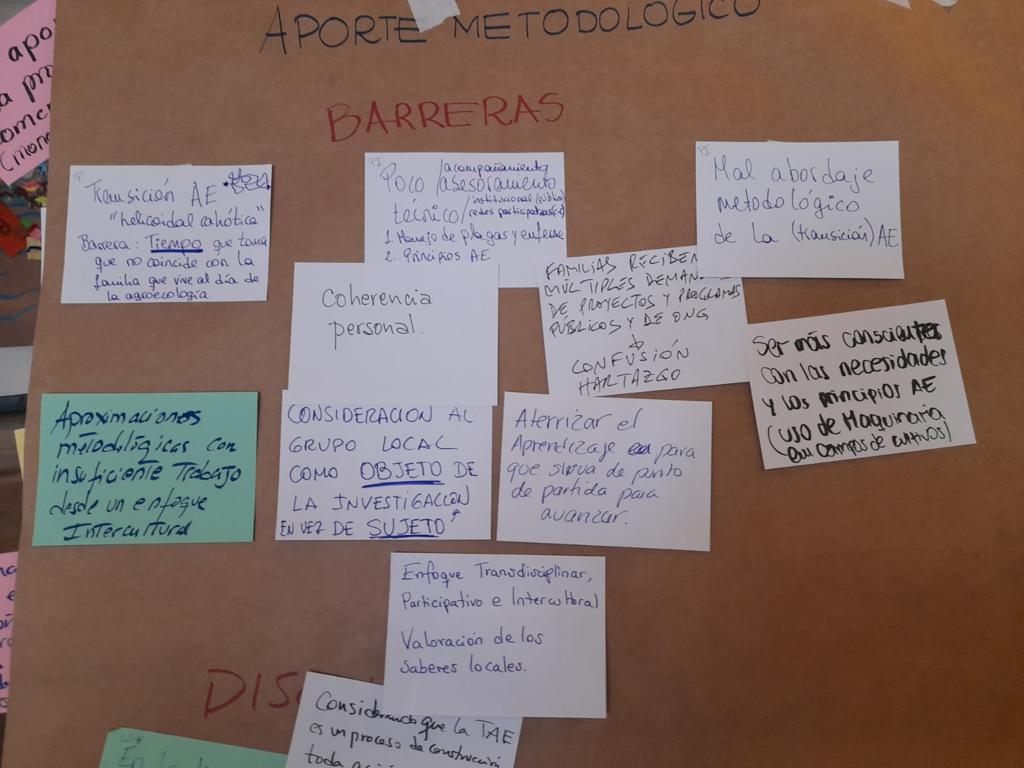 APORTE METODOLÓGICO
BARRERAS
apo
a pr
omer
(mone
Transición AE
"helicoidal cahótica"
Barrera: Tiempo que toma
que no coincide con la
familia que vive al día de
la agroecología.
PI
Poco /acompañamiento
/asesoramiento
técnico/institucional (público)
redes participativas
1. Manejo de plagas y enferme
2. Principios AE
PI
Mal abordaje
metodológico
de la (transición) AE
Coherencia
personal.
FAMILIAS RECIBEN
MÚLTIPLES DEMAN
DE PROYECTOS Y PROGRAMAS
PÚBLICOS Y DE ONG
CONFUSIÓN
HARTAZGO
Ser más conscientes
con las necesidades
y los principios AE
(uso de Maquinaria
en campos de cultivos)
Aproximaciones
metodológicas con
insuficiente Trabajo
desde un enfoque
Intercultural
CONSIDERACION AL
GRUPO LOCAL
COMO OBJETO DE
LA INVESTIGACION
EN VEZ DE SUJETO
Aterrizar el
Aprentizaje para
que sirva de punto
de partida para
avanzar.
Enfoque Transdisciplinar,
Participativo e Intercultural
Valoración de los
Saberes locales.
DIS
Considerando que la TAE
es un proceso de construcción
toda
En la